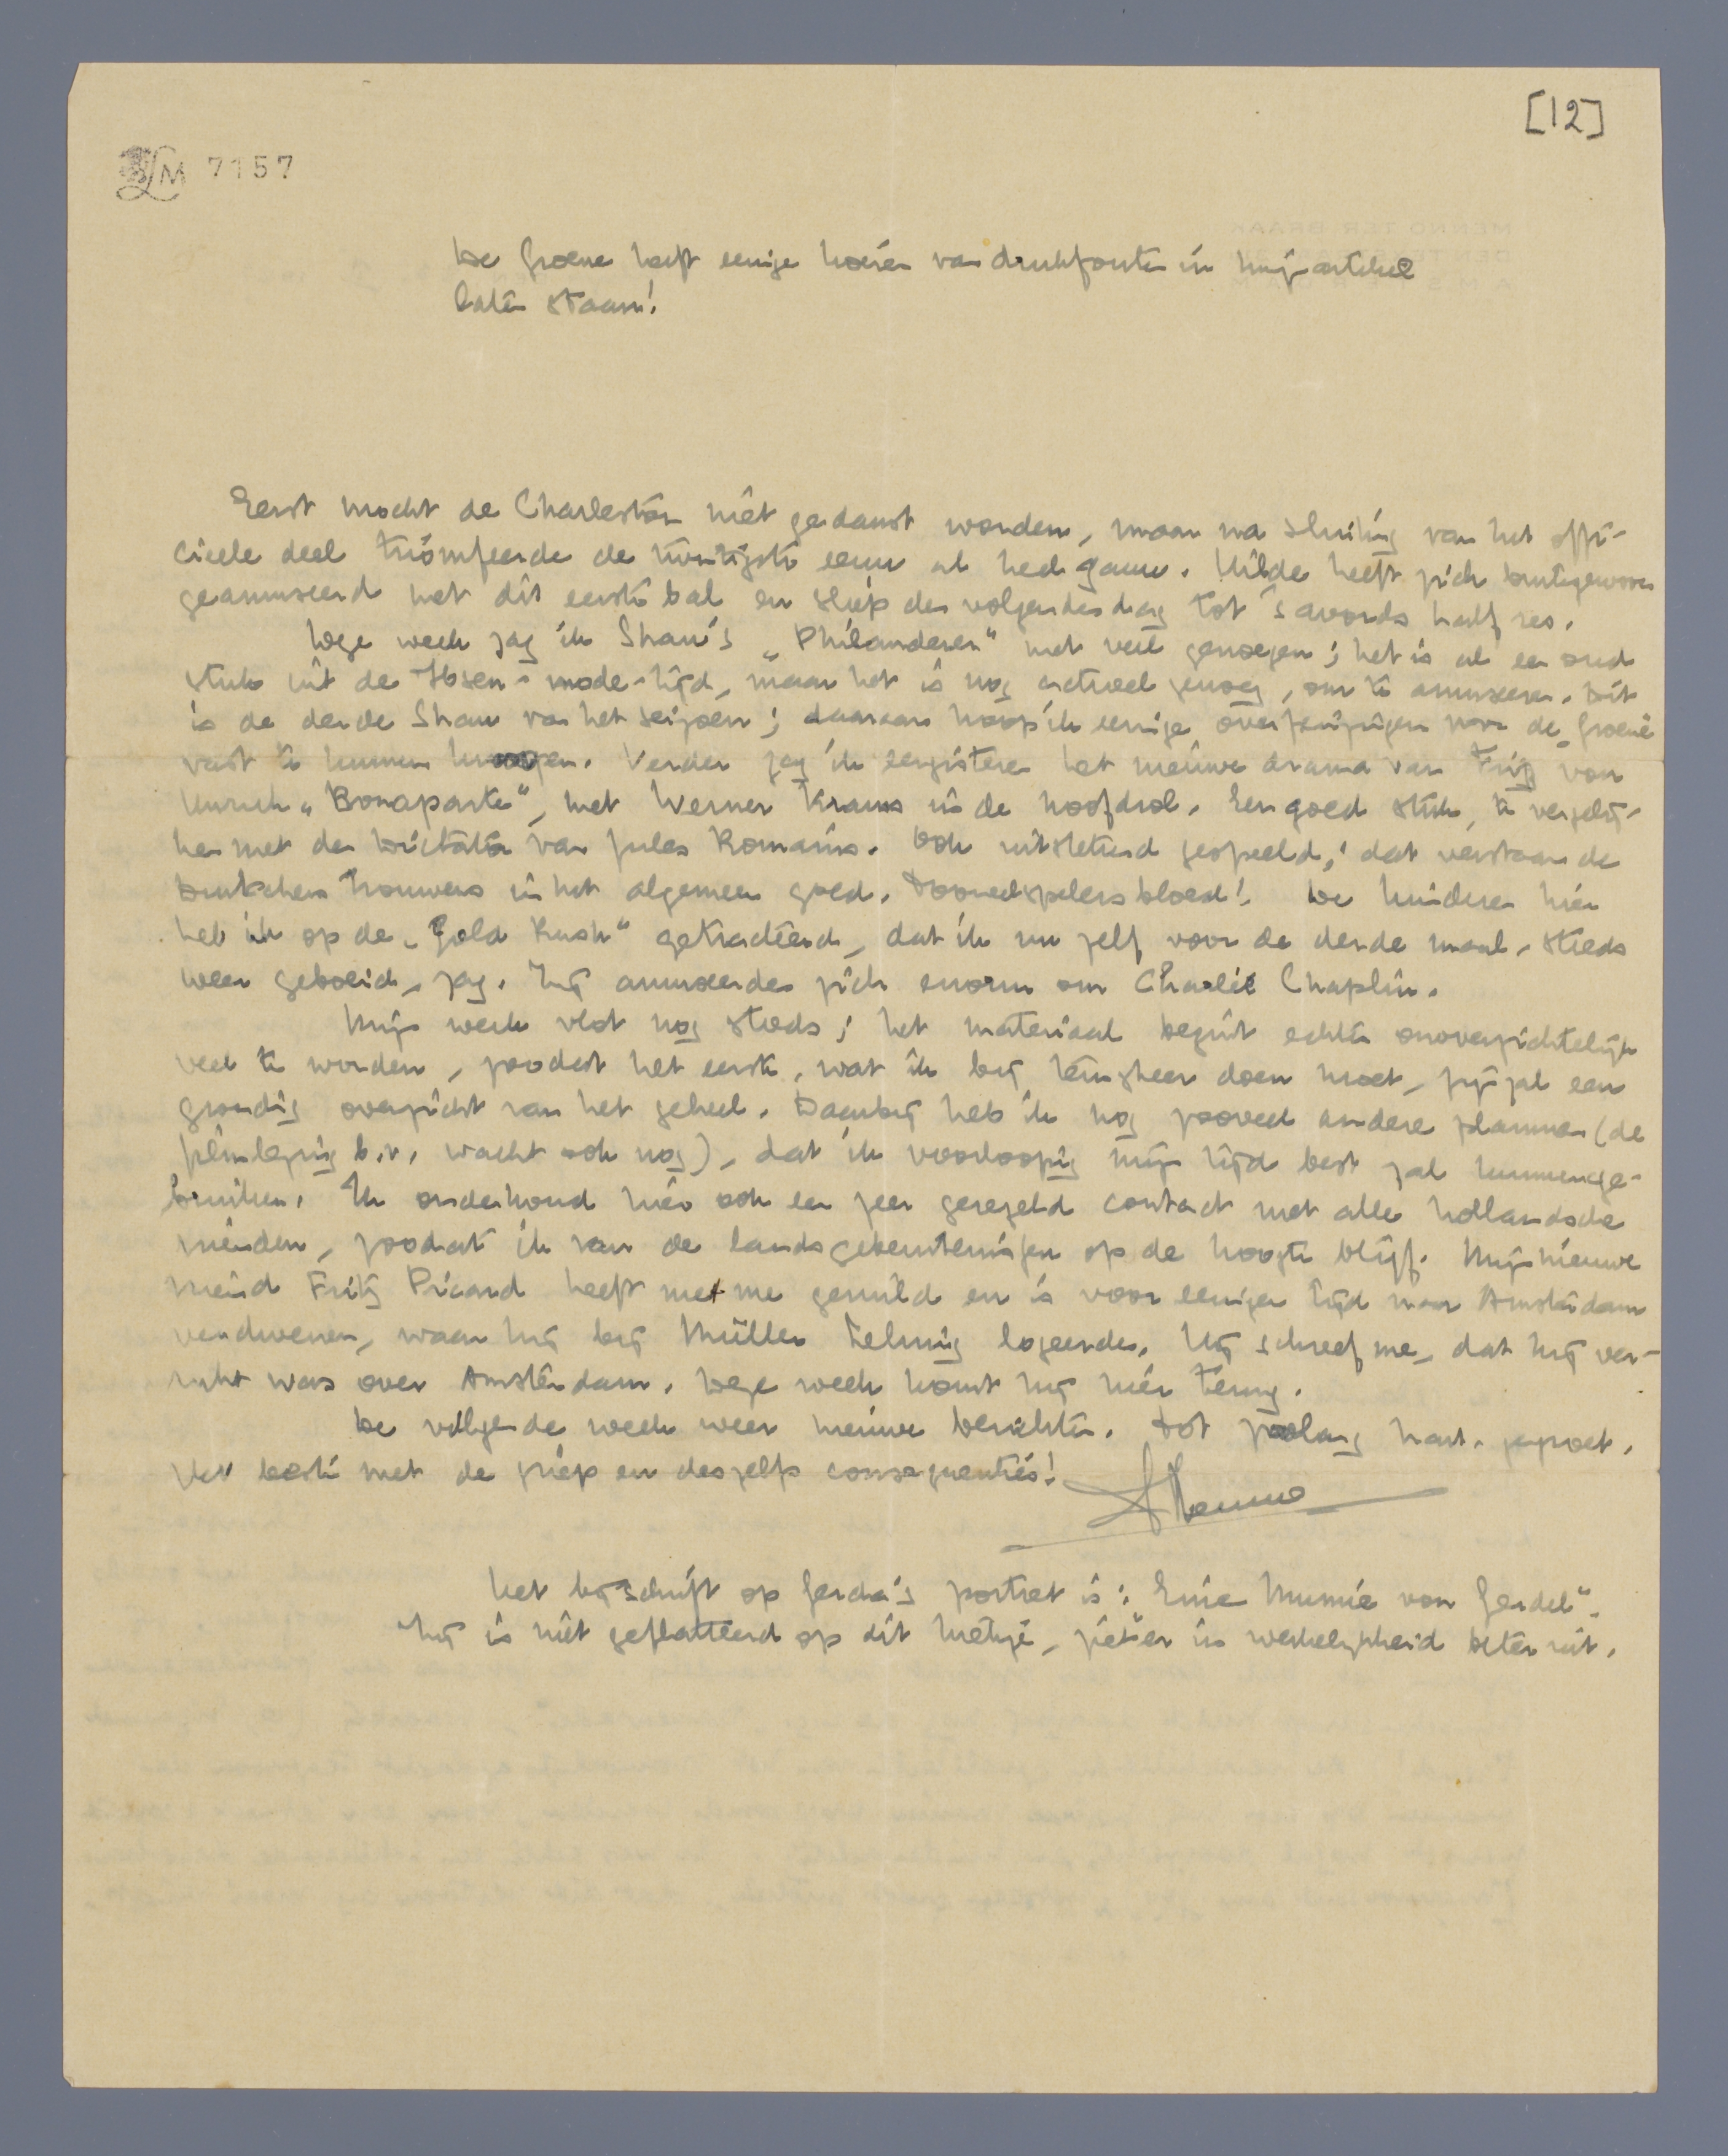 [12]
LM 7157
De Groene heeft eenige hoeren van drukfouten in mijn artikel
laten staan!
Eerst mocht de Charleston niet gedanst worden, maar na sluiting van het offi-
cieele deel triomfeerde de twintigste eeuw al heel gauw. Hilde heeft zich buitengewoon
geamuseerd met dit eerste bal en sliep den volgenden dag tot 's avonds half zes.
Deze week zag ik Shaw's „Philanderer" met veel genoegen; het is al een oud
stuk uit de Ibsen-mode-tijd, maar het is nog actueel genoeg, om te amuseeren. Dit
is de derde Shaw van het seizoen; daaraan hoop ik eenige overpeinzingen voor de „Groene
vast te kunnen knoopen. Verder zag ik eergisteren het nieuwe drama van Fritz von
Unruh „Bonaparte", met Werner Krauss in de hoofdrol. Een goed stuk, te vergelij-
ken met den Dictator van Jules Romains. Ook uitstekend gespeeld; dat verstaan de
Duitschers trouwens in het algemeen goed. Tooneelspelersbloed! De kinderen hier
heb ik op de „Gold Rush" getracteerd, dat ik nu zelf voor de derde maal, steeds
weer geboeid, zag. Zij amuseerden zich enorm om Charlie Chaplin.
Mijn werk vlot nog steeds; het materiaal begint echter onoverzichtelijk
veel te worden, zoodat het eerste, wat ik bij terugkeer doen moet, zijn zal een
grondig overzicht van het geheel. Daarbij heb ik nog zooveel andere plannen (de
filmlezing b.v. wacht ook nog), dat ik voorloopig mijn tijd best zal kunnen ge-
bruiken. Ik onderhoud hier ook een zeer geregeld contact met alle hollandsche
vrienden, zoodat ik van de landsgebeurtenissen op de hoogte blijf. Mijn nieuwe
vriend Fritz Picard heeft met me geruild en is voor eenigen tijd naar Amsterdam
verdwenen, waar hij bij Müller Lehning logeerde. Hij schreef me, dat hij ver-
rukt was over Amsterdam. Deze week komt hij hier terug.
De volgende week weer nieuwe berichten. Tot zoolang hart. gegroet.
Het beste met de griep en deszelfs consequenties!
Menno
Het bijschrift op Gerda's portret is: „Eine Mumie von Gerdel".
Zij is niet geflatteerd op dit kiekje, ziet er in werkelijkheid beter uit.